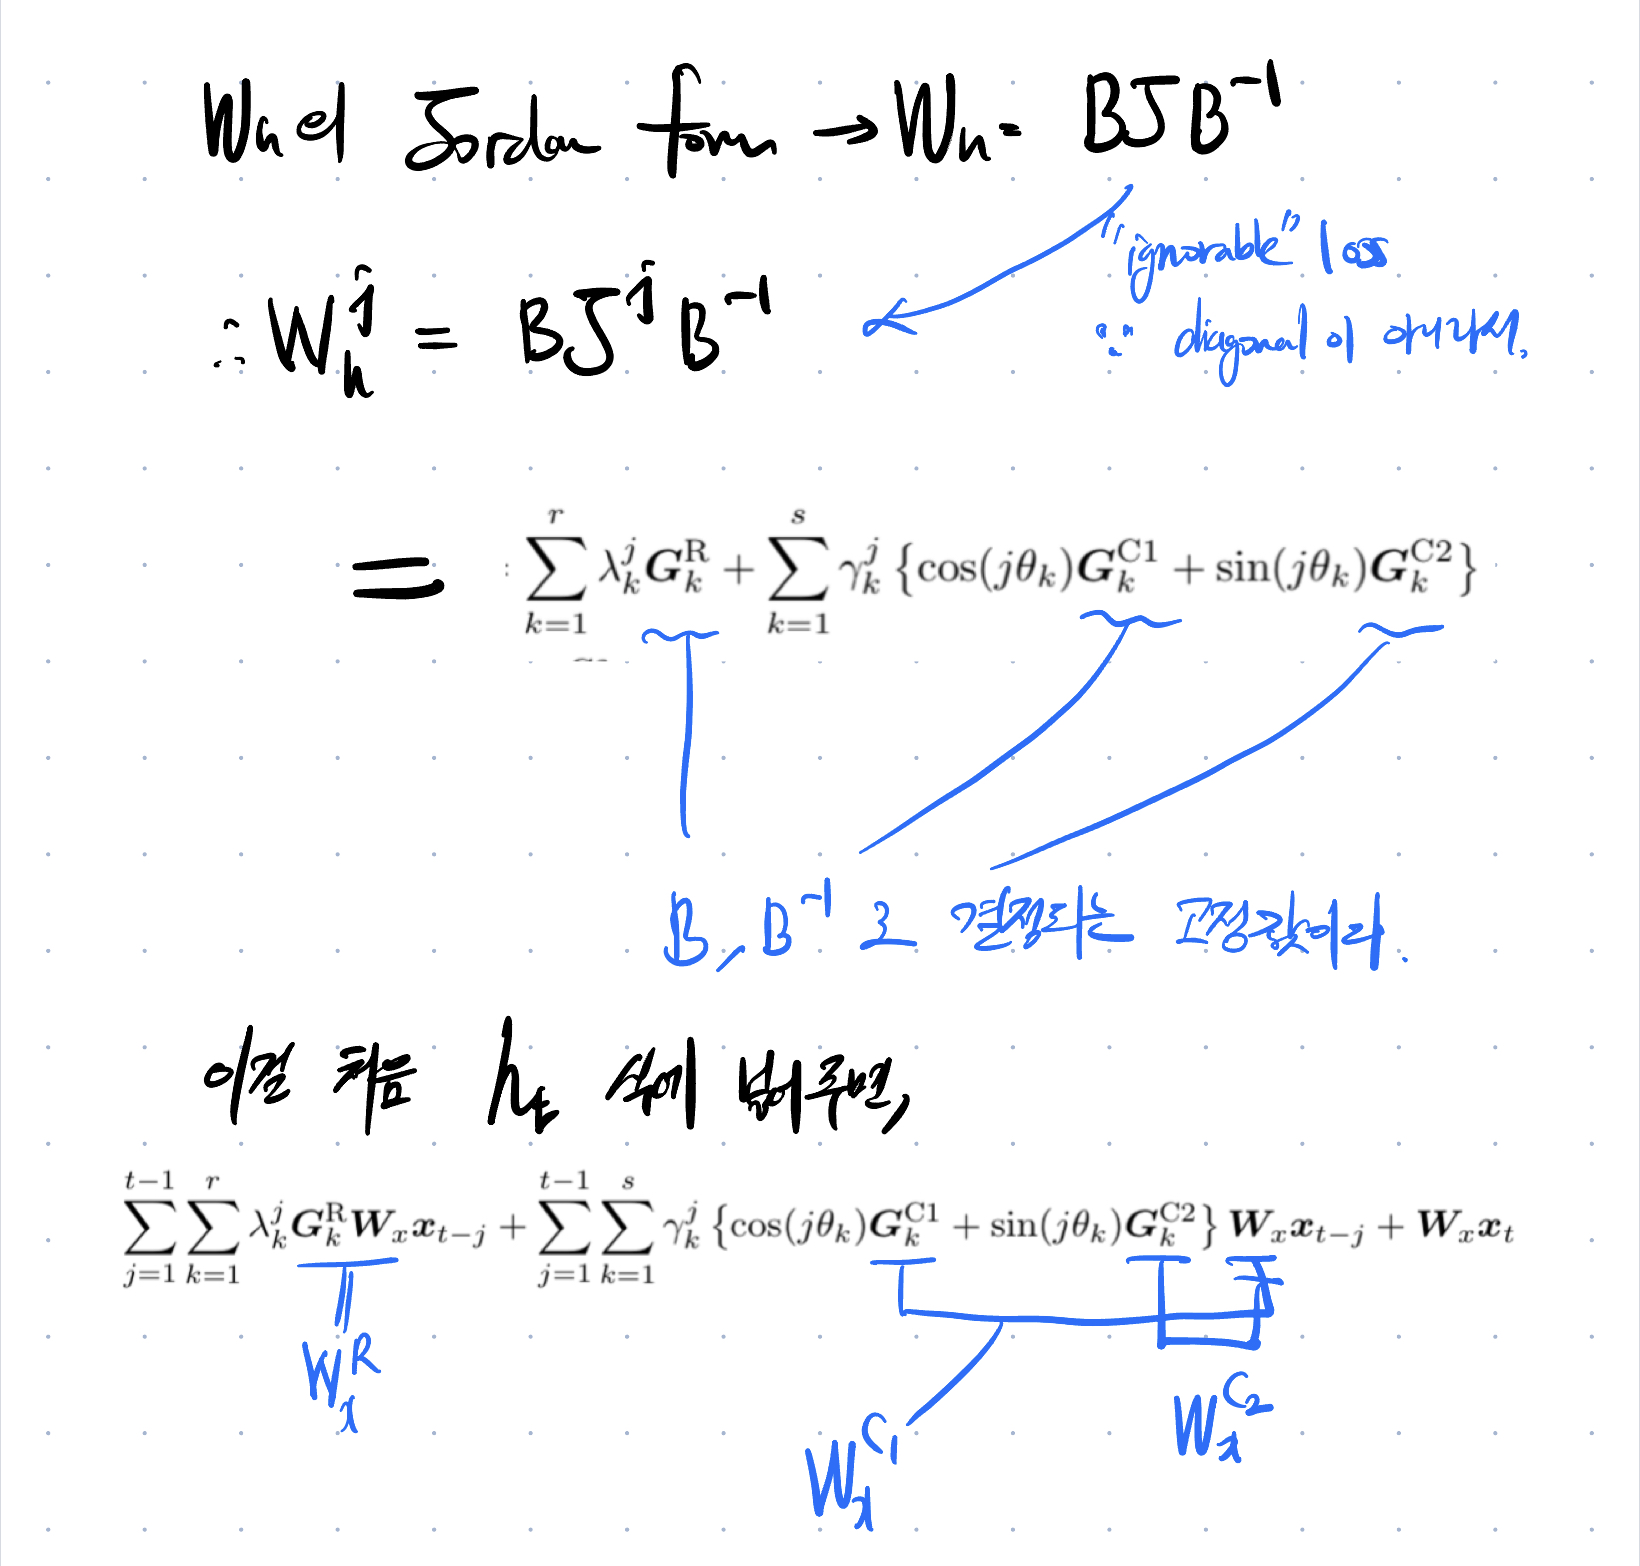 W_h의 Jordan form → W_h = BJB^{-1}
"ignorable" loss
∵ diagonal이 아니라서.
∴ W_h^j = BJ^jB^{-1}
= \sum_{k=1}^{r} λ_k^j G_k^R + \sum_{k=1}^{s} γ_k^j {cos(jθ_k)G_k^{C1} + sin(jθ_k)G_k^{C2}}
B, B^{-1}로 결정되는 고정값이다.
이걸 처음 h_t 식에 넘겨주면,
\sum_{j=1}^{t-1} \sum_{k=1}^{r} λ_k^j G_k^R W_x x_{t-j} + \sum_{j=1}^{t-1} \sum_{k=1}^{s} γ_k^j {cos(jθ_k)G_k^{C1} + sin(jθ_k)G_k^{C2}} W_x x_{t-j} + W_x x_t
W_x^R
W_x^{C1}
W_x^{C2}